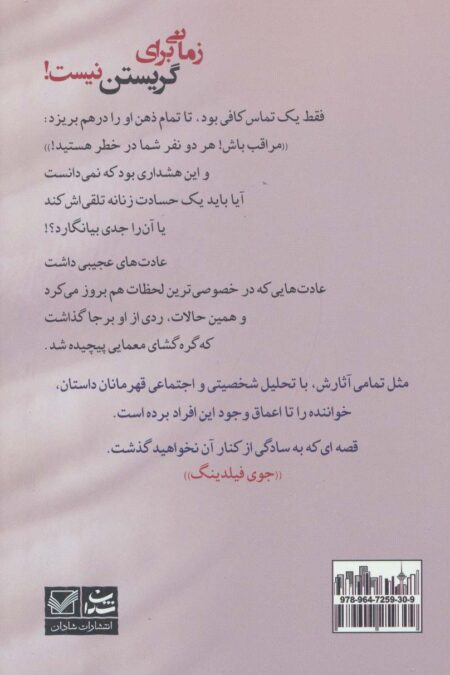 زمانی برای
گریستن نیست!
فقط یک تماس کافی بود، تا تمام ذهن او را درهم بریزد:
((مراقب باش! هر دو نفر شما در خطر هستید!))
و این هشداری بود که نمی‌دانست
آیا باید یک حسادت زنانه تلقی‌اش کند
یا آن‌را جدی بیانگارد؟!
عادت‌های عجیبی داشت
عادت‌هایی که در خصوصی‌ترین لحظات هم بروز می‌کرد
و همین حالات، ردی از او بر جا گذاشت
که گره‌گشای معمایی پیچیده شد.
مثل تمامی آثارش، با تحلیل شخصیتی و اجتماعی قهرمانان داستان،
خواننده را تا اعماق وجود این افراد برده است.
قصه ای که به سادگی از کنار آن نخواهید گذشت.
((جوی فیلدینگ))
شادان
انتشارات شادان
978-964-7259-30-9